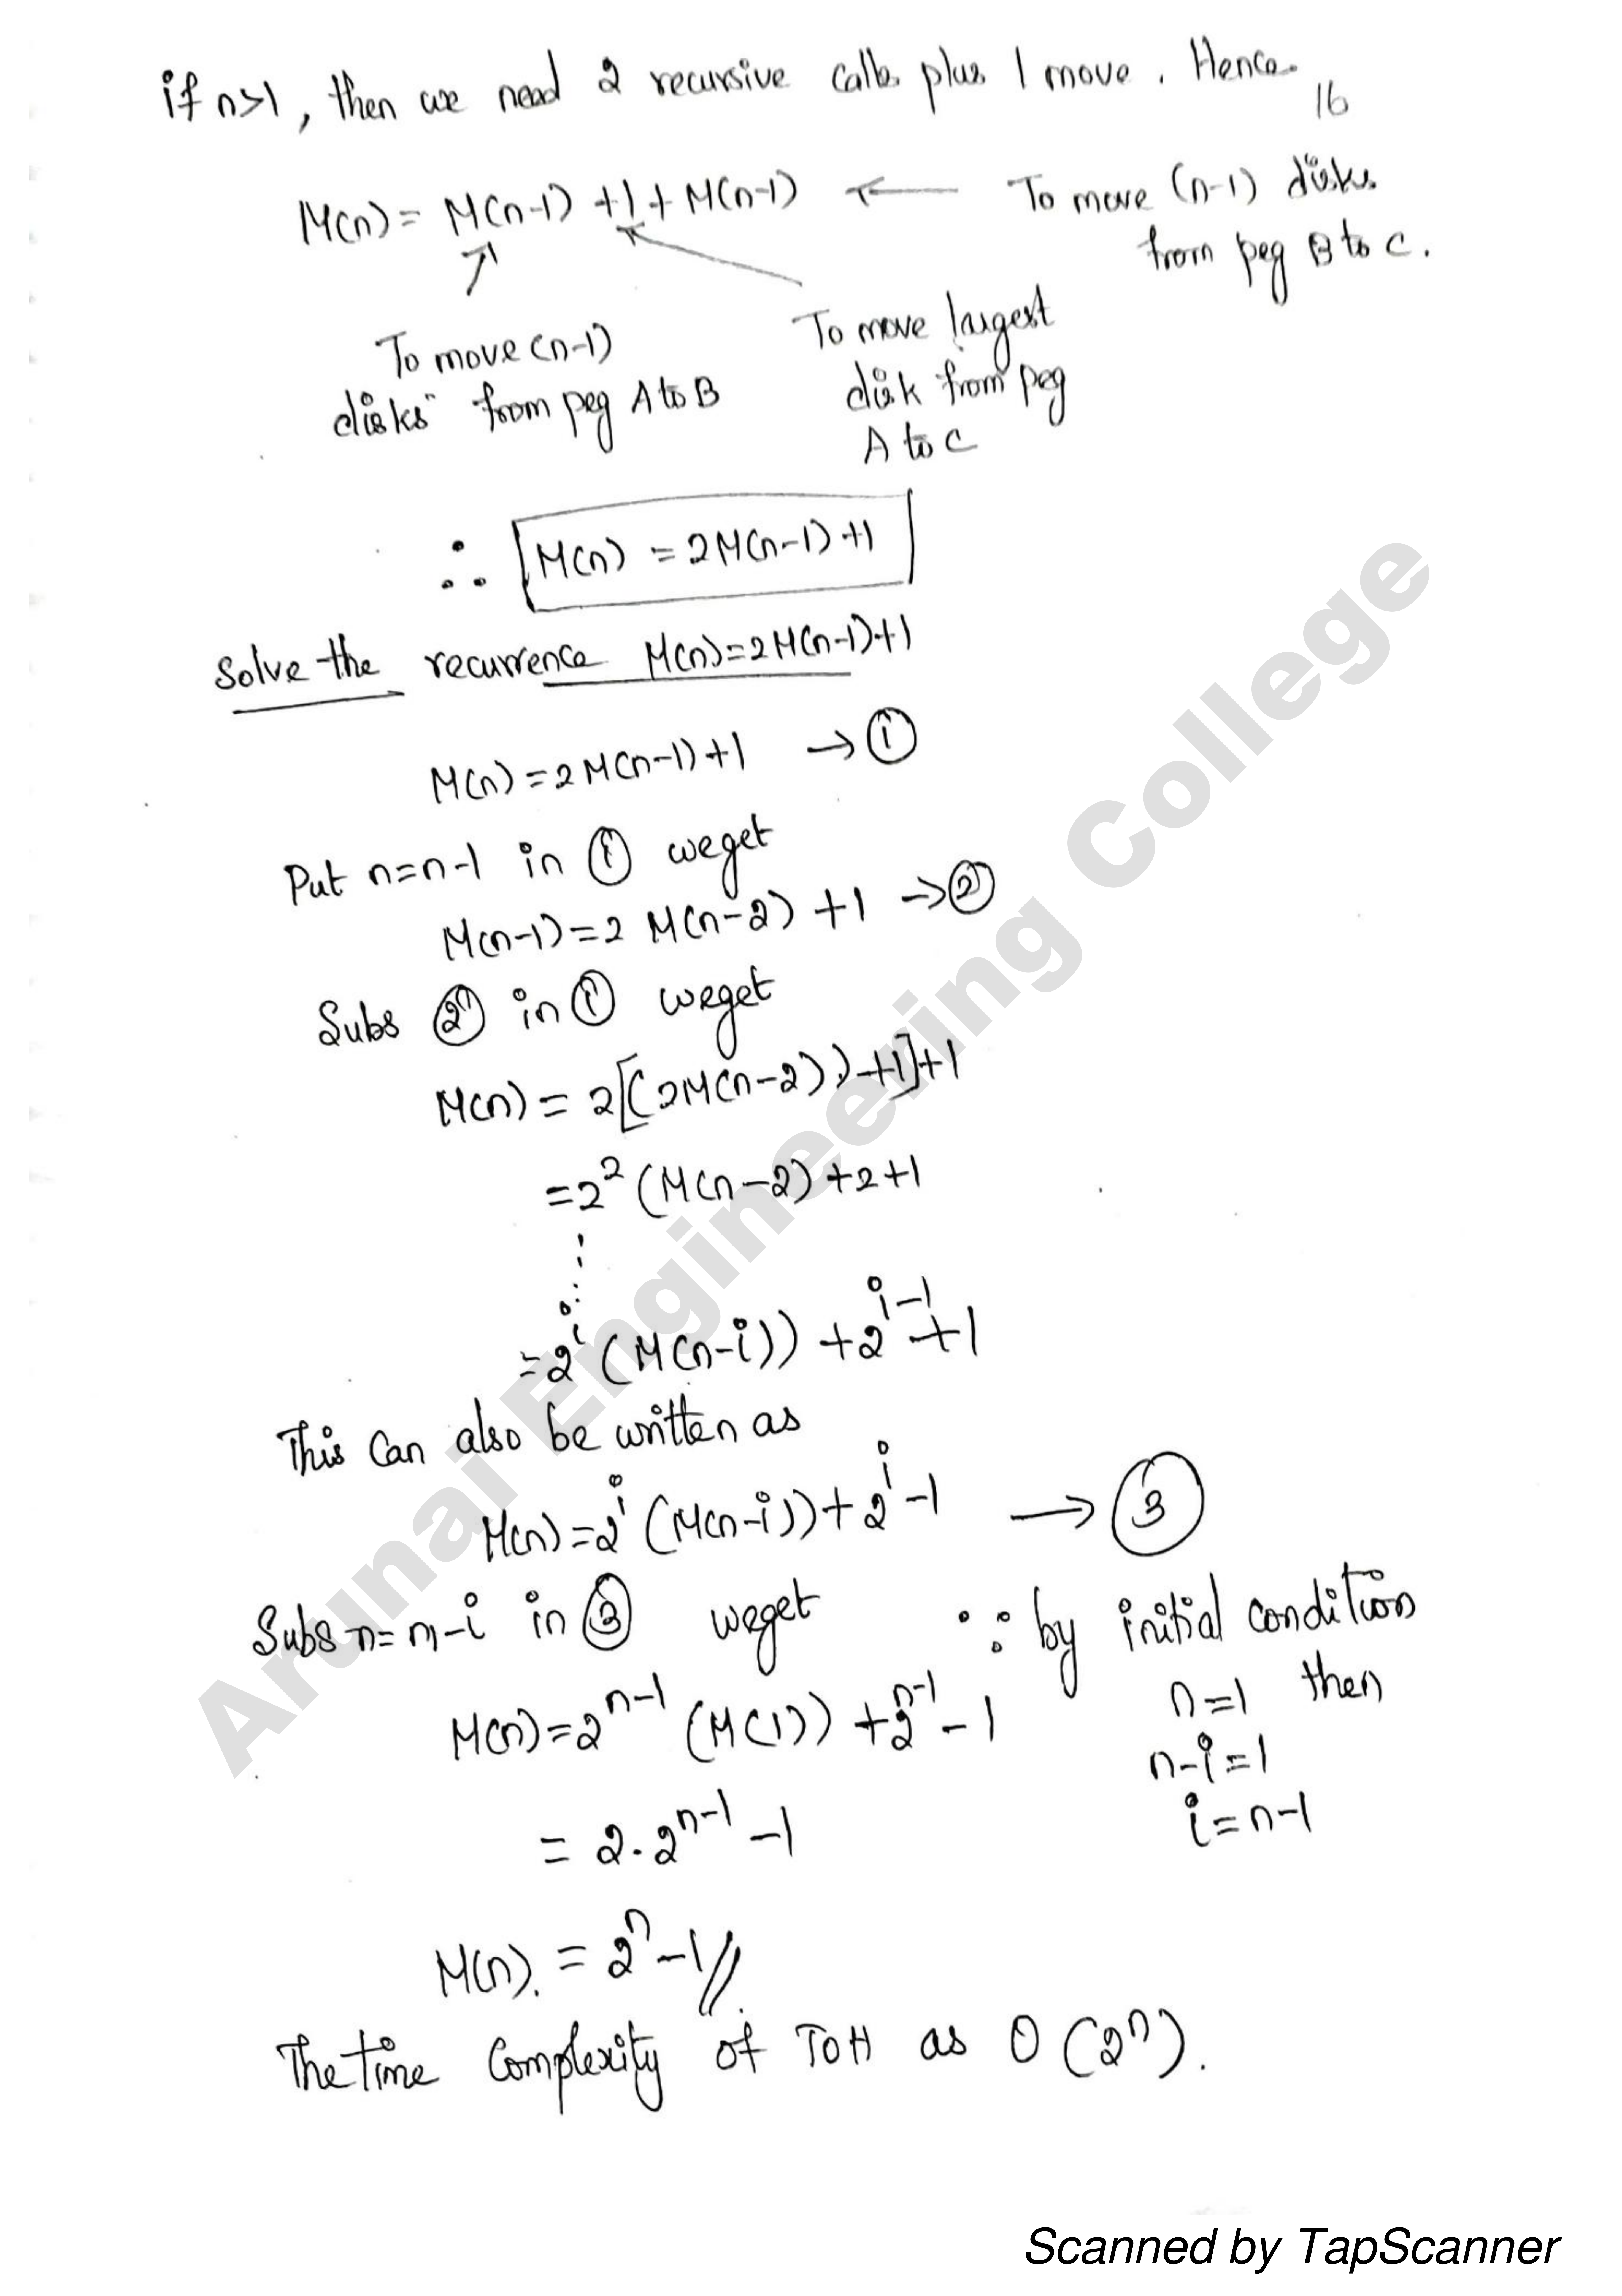 if n>1, then we need 2 recursive calls plus 1 move. Hence.
16
M(n) = M(n-1) +1+ M(n-1) ← To move (n-1) disks
from peg B to C.
To move (n-1)
disks from peg A to B
To move largest
disk from peg
A to C
∴ M(n) = 2M(n-1)+1
Solve the recurrence M(n)=2M(n-1)+1
M(n)=2M(n-1)+1 → ①
Put n=n-1 in ① weget
M(n-1)=2 M(n-2) +1 → ②
Subs ② in ① weget
M(n) = 2[(2M(n-2))+1]+1
=2² (M(n-2)+2+1
=2^i (M(n-i)) +2^i-1 +1
This Can also be written as
M(n)=2^i (M(n-i))+2^i-1 → ③
Subs n=n-i in ③ weget
∵ by initial condition
n=1 then
n-i=1
i=n-1
M(n)=2^n-1 (M(1)) +2^n-1 -1
= 2.2^n-1 -1
M(n). = 2^n-1//.
The time Complexity of TOH as O(2^n).
Arunai Engineering College
Scanned by TapScanner